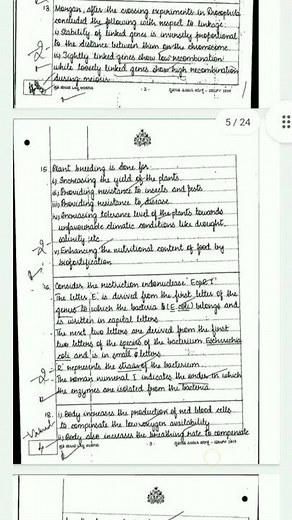 13. Morgan, after the crossing experiments in Drosophila
concluded the following with respect to linkage:
i) Stability of linked genes is inversely proportional
to the distance between them on the chromosome.
ii) Tightly linked genes show low recombination
while loosely linked genes show high recombination
during meiosis.
- 2 -
5 / 24
15. Plant breeding is done for
i) Increasing the yield of the plants
ii) Providing resistance to insects and pests
iii) Providing resistance to disease
iv) Increasing tolerance level of the plants towards
unfavourable climatic conditions like drought,
salinity, etc
v) Enhancing the nutritional content of food by
biofortification
16. Consider the restriction endonuclease EcoR I
The letter 'E' is derived from the first letter of the
genus to which the bacteria (E.coli) belongs and
is written in capital letters.
The next two letters are derived from the first
two letters of the species of the bacterium Escherichia
coli and is in small letters
'R' represents the strain of the bacterium.
The roman numeral I indicates the order in which
the enzymes are isolated from the bacteria
18. i) Body increases the production of red blood cells
to compensate the low oxygen availability
ii) Body also increases the breathing rate to compensate
4
- 3 -